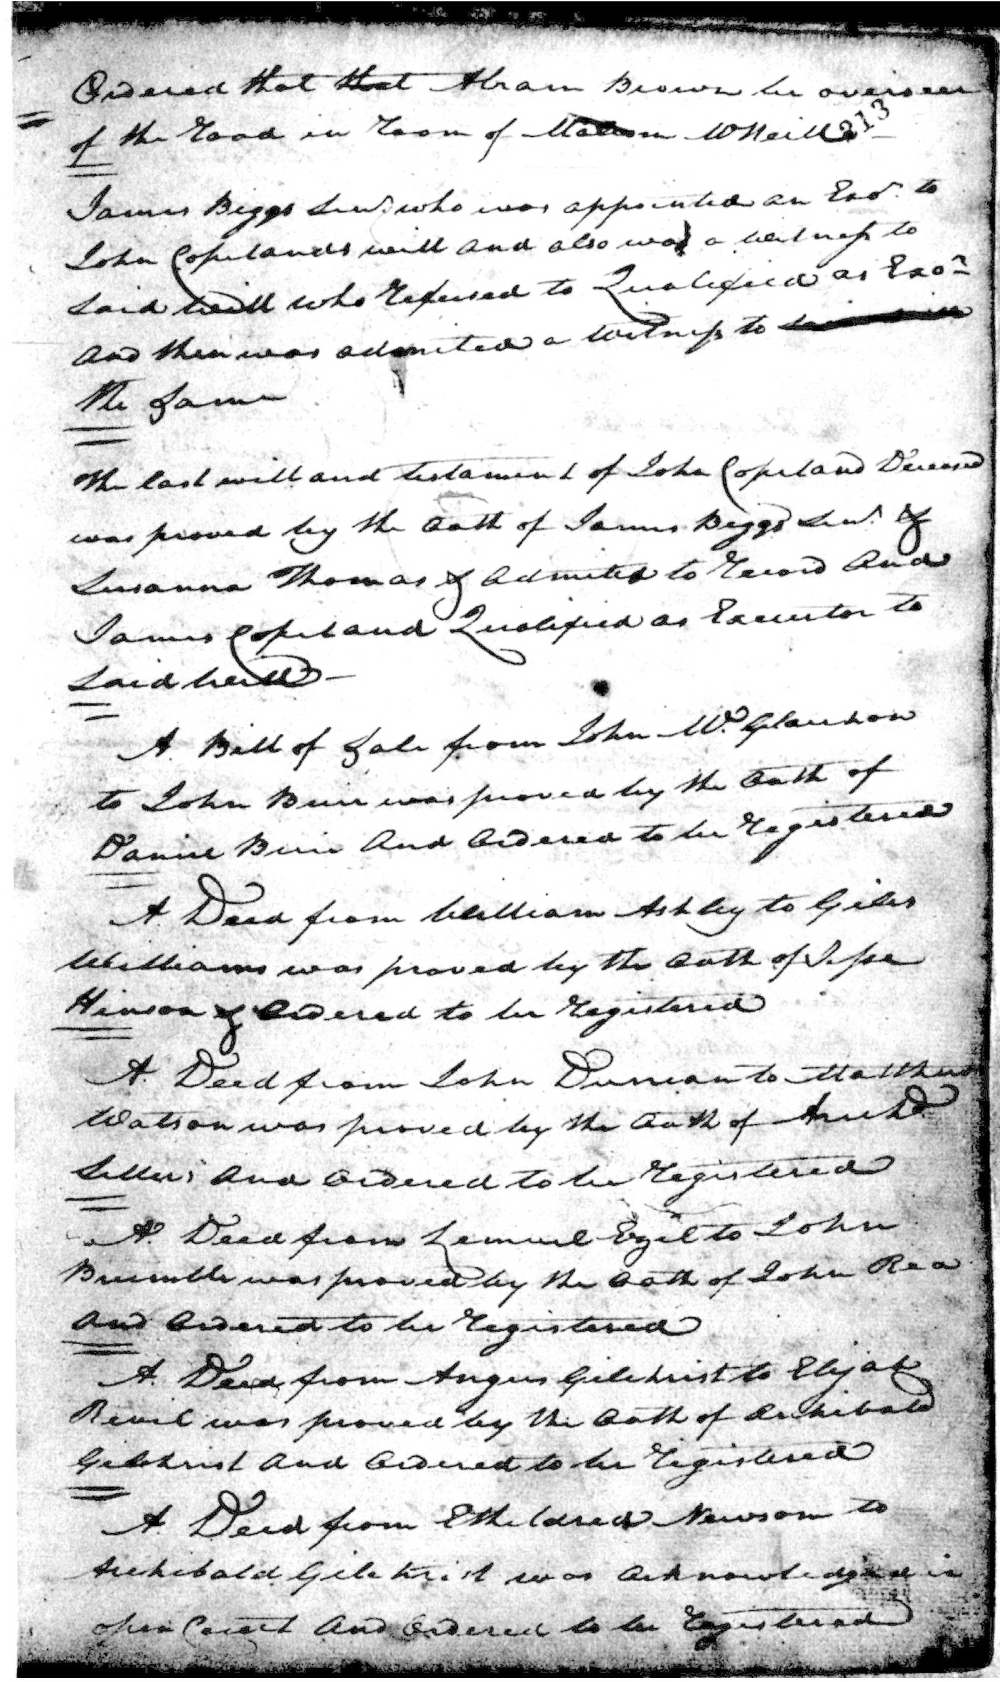 Ordered that that Abram Brown be overseer
of the Road in Room of Malcom McNeill
213
James Biggs Senr. who was appointed an Exor. to
John Copelands will and also was a witness to
Said will who Refused to Qualified as Exor
And then was admited a Witness to
the Same
The last will and testament of John Copeland Deceased
was proved by the Oath of James Biggs Senr. &
Susanna Thomas & Admited to Record And
James Copeland Qualified as Executor to
Said Will
A Bill of Sale from John McGlauhon
to John Buie was proved by the Oath of
Daniel Buie And Ordered to be Registered
A Deed from William Ashley to Giles
Williams was proved by the Oath of Jesse
Hinson & Ordered to be Registered
A Deed from John Duncan to Matthew
Watson was proved by the Oath of Archd.
Sellers And Ordered to be Registered
A Deed from Lemuel Ezel to John
Brumble was proved by the Oath of John Rea
And Ordered to be Registered
A Deed from Angus Gilchrist to Elijah
Revil was proved by the Oath of Archibald
Gilchrist And Ordered to be Registered
A Deed from Etheldred Newsom to
Archibald Gilchrist was Acknowledged in
open Court And Ordered to be Registered